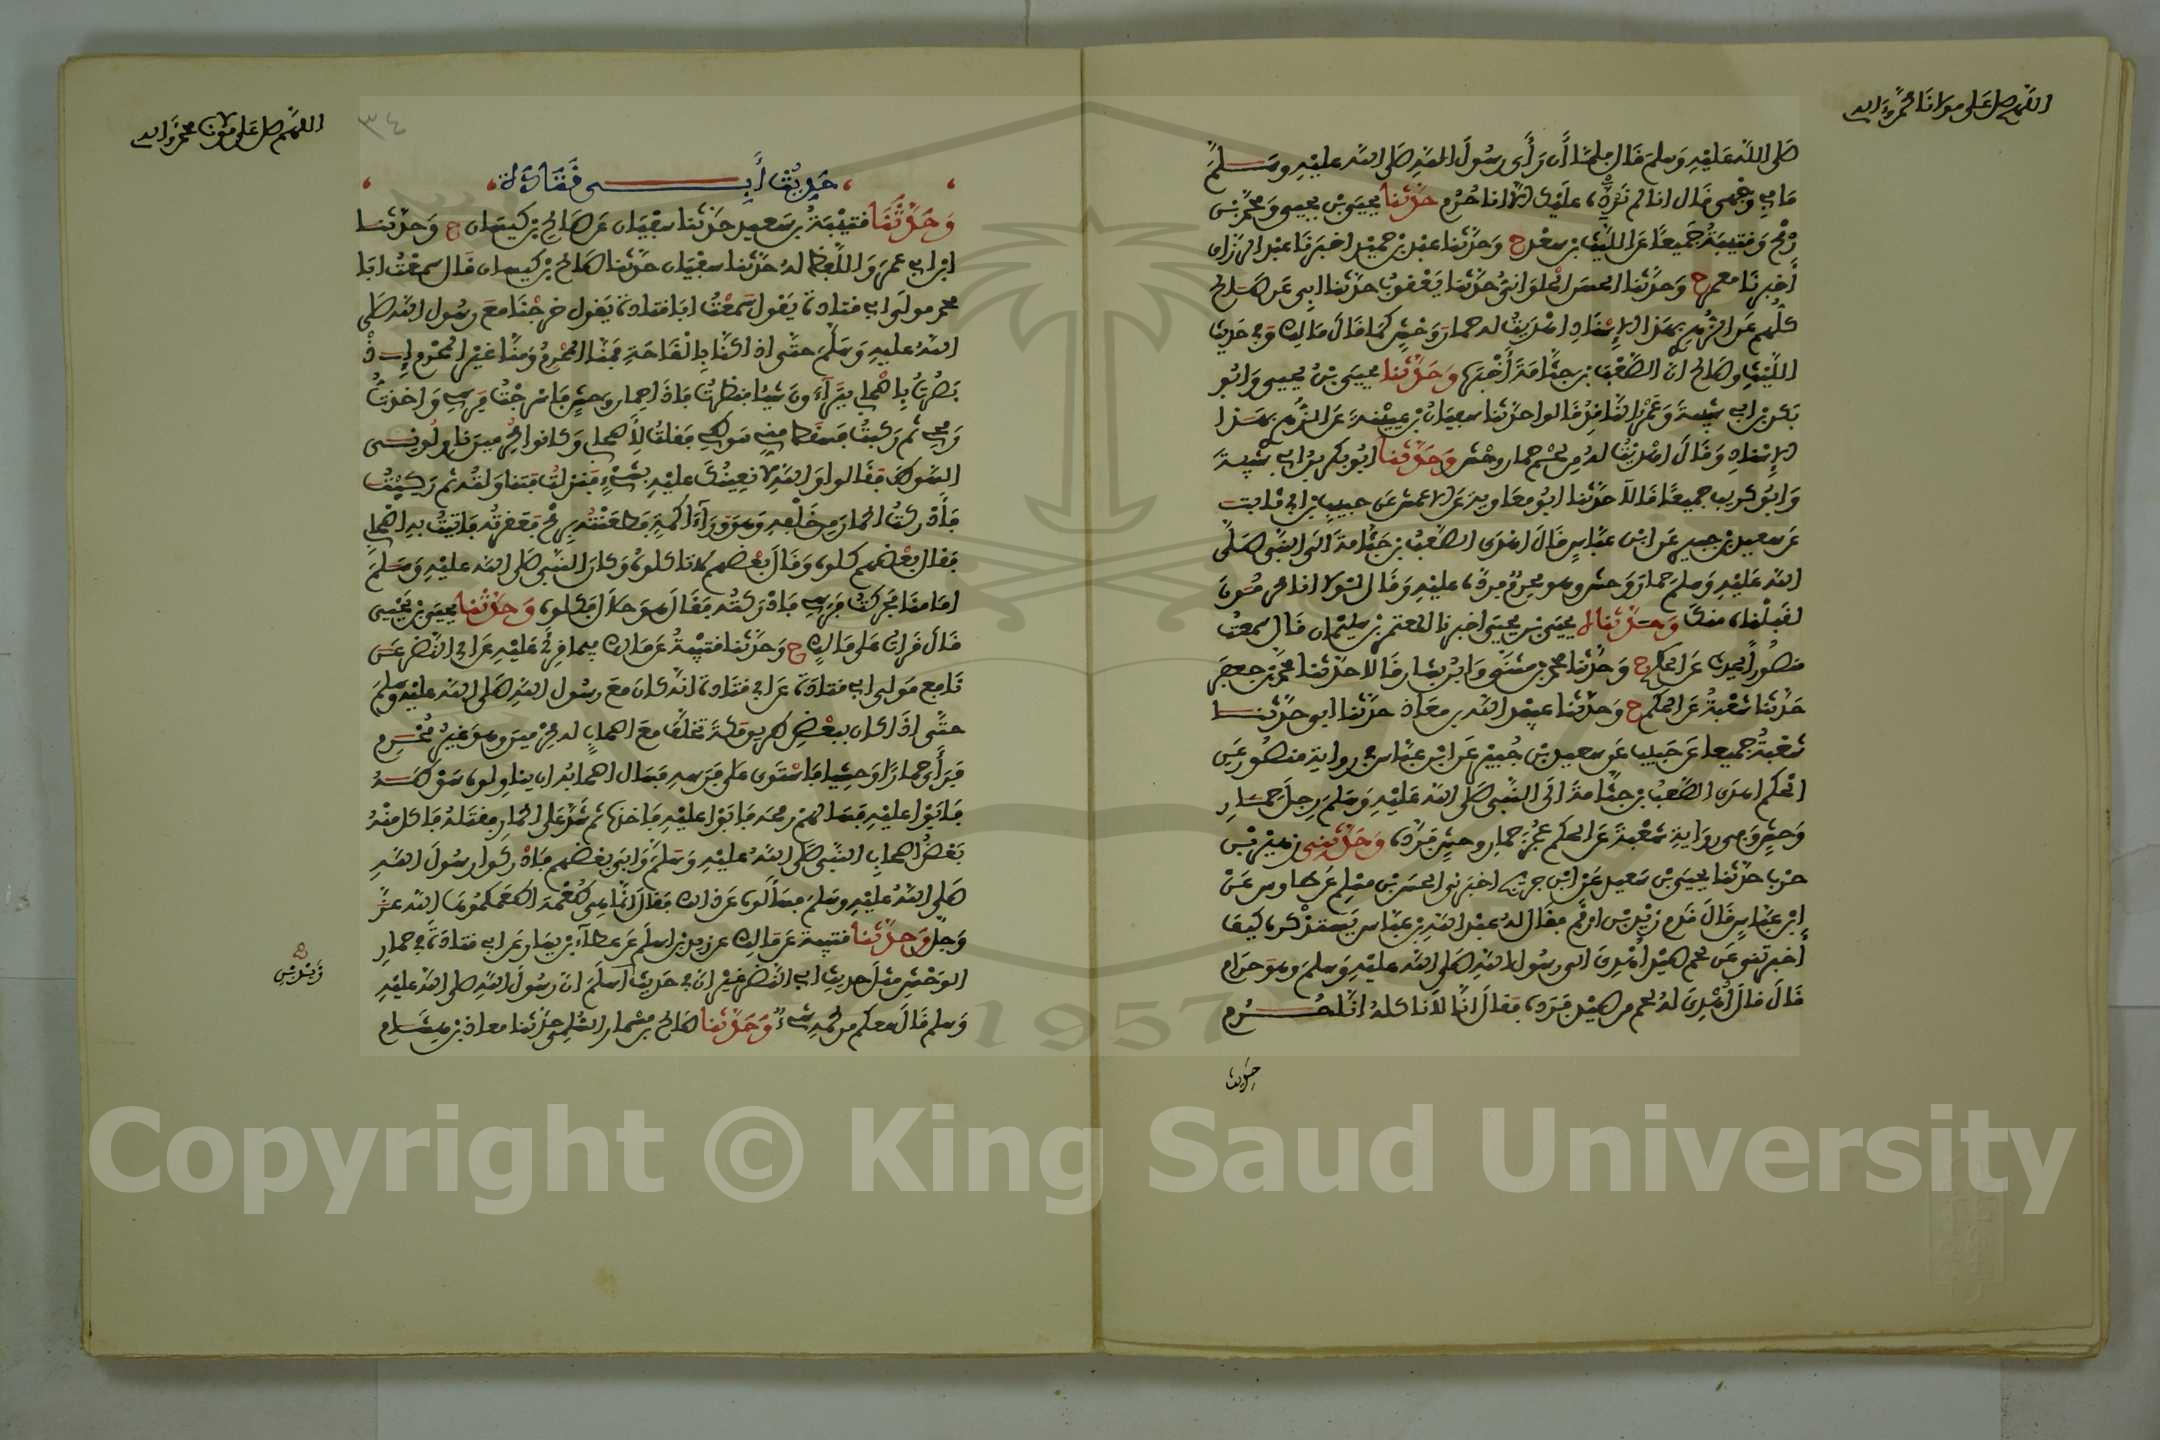 اللهم صل على مولانا محمد وءاله
صلى الله عليه وسلم قال فلما أن رأى رسول الله صلى الله عليه وسلم
ما في وجهي قال انا لم نرده عليك الا انا حرم حدثنا يحيى بن يحيى ومحمد بن
رمح وقتيبة جميعا عن الليث بن سعد ح وحدثنا عبد بن حميد اخبرنا عبد الرزاق
أخبرنا معمر ح وحدثنا الحسن الحلواني حدثنا يعقوب حدثنا ابي عن صالح
كلهم عن الزهري بهذا الإسناد اهديت له حمار وحش كما قال مالك وفي حديث
الليث وصالح ان الصعب بن جثامة أخبره وحدثنا يحيى بن يحيى وابو
بكر بن ابي شيبة وعمرو الناقد قالوا حدثنا سفيان بن عيينة عن الزهري بهذا
الإسناد وقال اهديت له من لحم حمار وحش وحدثنا ابو بكر بن ابي شيبة
وابو كريب جميعا قالا حدثنا ابو معاوية عن الاعمش عن حبيب بن ابي ثابت
عن سعيد بن جبير عن ابن عباس قال اهدى الصعب بن جثامة الى النبي صلى
الله عليه وسلم حمار وحش وهو محرم فرده عليه وقال لولا انا محرمون
لقبلناه منك وحدثناه يحيى بن يحيى اخبرنا المعتمر بن سليمان قال سمعت
منصورا يحدث عن الحكم ح وحدثنا محمد بن مثنى وابن بشار قالا حدثنا محمد بن جعفر
حدثنا شعبة عن الحكم ح وحدثنا عبيد الله بن معاذ حدثنا ابي حدثنا
شعبة جميعا عن حبيب عن سعيد بن جبير عن ابن عباس في رواية منصور عن
الحكم اهدى الصعب بن جثامة الى النبي صلى الله عليه وسلم رجل حمار
وحش وفي رواية شعبة عن الحكم عجز حمار وحش فرده وحدثني زهير بن
حرب حدثنا يحيى بن سعيد عن ابن جريج اخبرني الحسن بن مسلم عن طاوس عن
ابن عباس قال قدم زيد بن ارقم فقال له عبد الله بن عباس يستذكره كيف
أخبرتني عن لحم صيد أهدي الى رسول الله صلى الله عليه وسلم وهو حرام
قال قال أهدي له لحم من صيد فرده فقال انا لا ناكله انا حرم
حديث
اللهم صل على مولانا محمد وءاله
٣٤
حديث أبي قتادة
وحدثنا قتيبة بن سعيد حدثنا سفيان عن صالح بن كيسان ح وحدثنا
ابن ابي عمر واللفظ له حدثنا سفيان حدثنا صالح بن كيسان قال سمعت ابا
محمد مولى ابي قتادة يقول سمعت ابا قتادة يقول خرجنا مع رسول الله صلى
الله عليه وسلم حتى اذا كنا بالقاحة فمنا المحرم ومنا غير المحرم إذ
بصرت بأصحابي يتراءون شيئا فنظرت فاذا حمار وحش فاسرجت فرسي واخذت
رمحي ثم ركبت فسقط مني سوطي فقلت لأصحابي وكانوا محرمين ناولوني
السوط فقالوا والله لا نعينك عليه بشيء فنزلت فتناولته ثم ركبت
فأدركت الحمار من خلفه وهو وراء اكمة فطعنته برمحي فعقرته فاتيت به اصحابي
فقال بعضهم كلوه وقال بعضهم لا تاكلوه وكان النبي صلى الله عليه وسلم
امامنا فحركت فرسي فادركته فقال هو حلال فكلوه وحدثنا يحيى بن يحيى
قال قرات على مالك ح وحدثنا قتيبة عن مالك فيما قرئ عليه عن ابي النضر عن
نافع مولى ابي قتادة عن ابي قتادة انه كان مع رسول الله صلى الله عليه وسلم
حتى اذا كان ببعض طريق مكة تخلف مع اصحاب له محرمين وهو غير محرم
فرأى حمارا وحشيا فاستوى على فرسه فسال اصحابه ان يناولوه سوطه
فابوا عليه فسالهم رمحه فابوا عليه فاخذه ثم شد على الحمار فقتله فاكل منه
بعض اصحاب النبي صلى الله عليه وسلم وابى بعضهم فادركوا رسول الله
صلى الله عليه وسلم فسألوه عن ذلك فقال انما هي طعمة اطعمكموها الله عز
وجل وحدثنا قتيبة عن مالك عن زيد بن اسلم عن عطاء بن يسار عن ابي قتادة في حمار
الوحش مثل حديث ابي النضر غير ان في حديث زيد بن اسلم ان رسول الله صلى الله عليه
وسلم قال معكم من لحمه شيء وحدثنا صالح بن مسمار السلمي حدثنا معاذ بن هشام
زيد بن